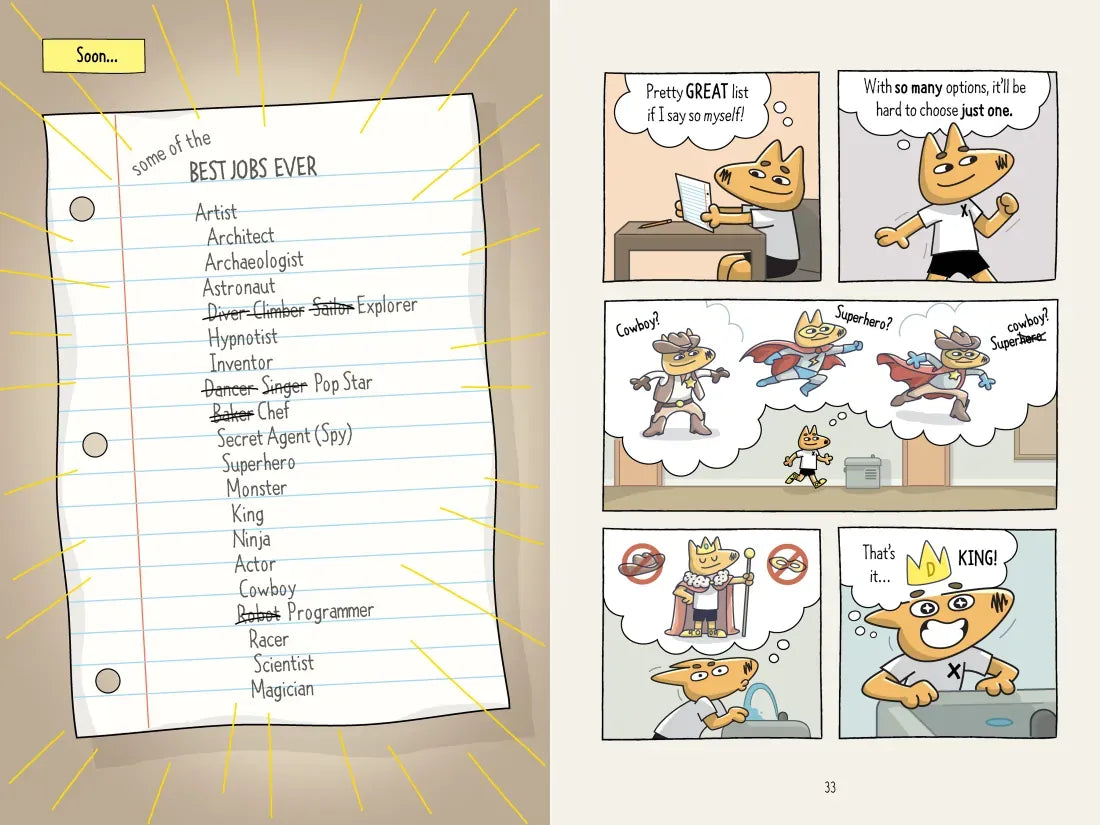 Soon...
some of the
BEST JOBS EVER
Artist
Architect
Archaeologist
Astronaut
Diver Climber Sailor Explorer
Hypnotist
Inventor
Dancer Singer Pop Star
Baker Chef
Secret Agent (Spy)
Superhero
Monster
King
Ninja
Actor
Cowboy
Robot Programmer
Racer
Scientist
Magician
Pretty GREAT list
if I say so myself!
X
With so many options, it'll be
hard to choose just one.
X
Cowboy?
Superhero?
cowboy?
Superhero
X
That's
it...
D
KING!
X
33